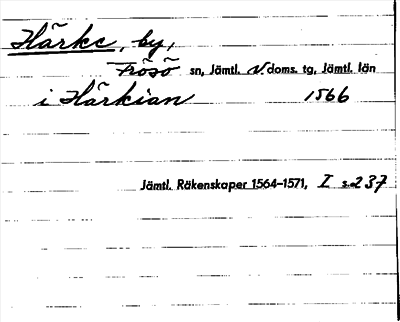 Härke, by,
Frösö sn, Jämtl. v. doms. tg, Jämtl. län
i Härkian 1566
Jämtl. Räkenskaper 1564-1571, I s. 237